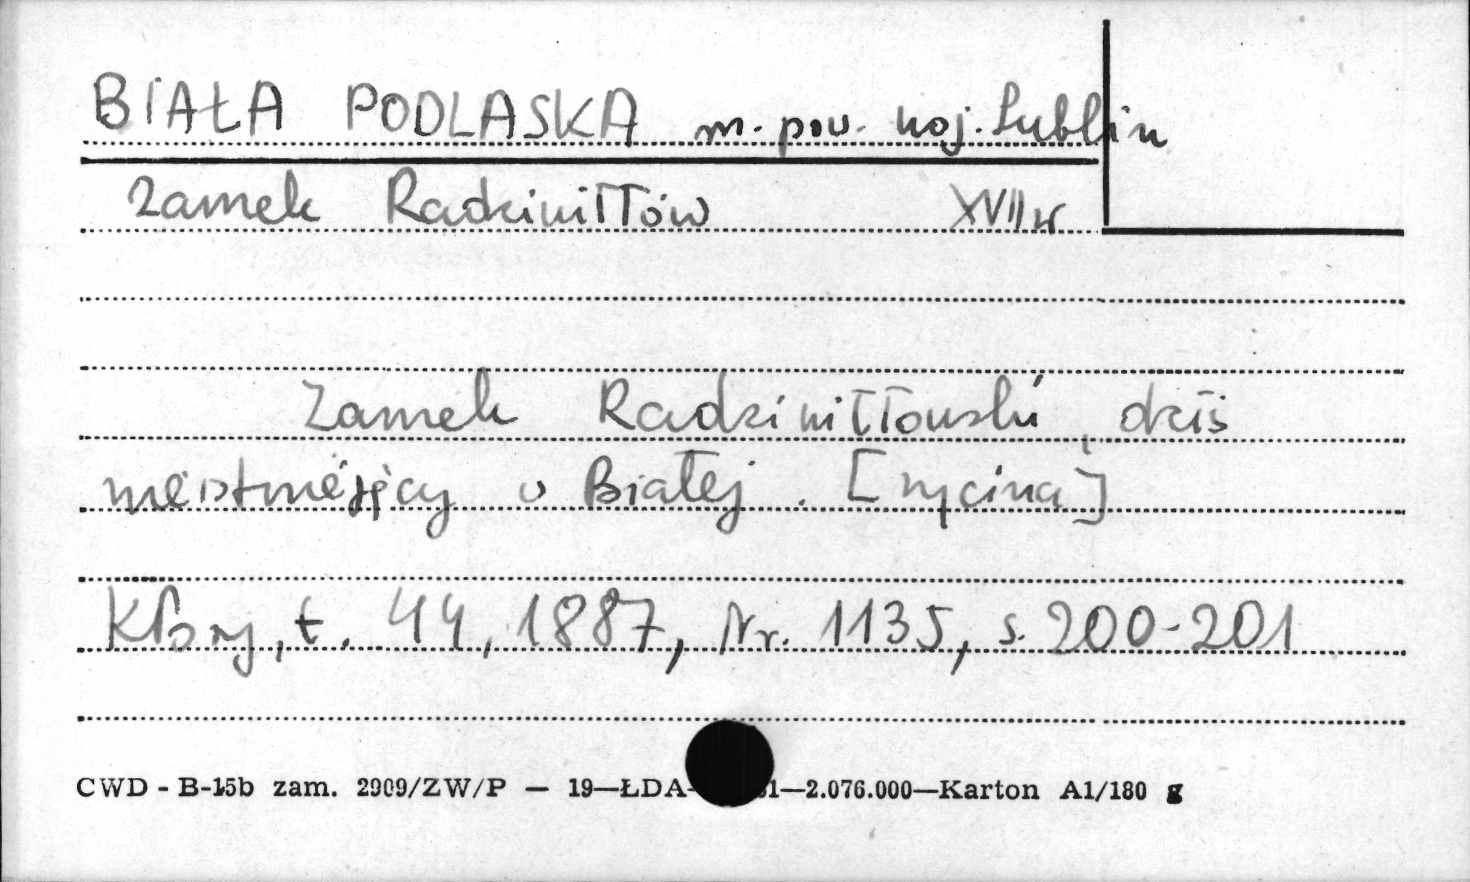 BIAŁA PODLASKA m. pow. woj. Lublin
Zamek Radziwiłłów XVII w
Zamek Radziwiłłowski, dziś
nieistniejący w Białej. [rycina]
Kłosy, t. 44, 1887, Nr. 1135, s. 200-201
CWD - B-15b zam. 2909/ZW/P — 19—ŁDA- 1—2.076.000—Karton A1/180 g